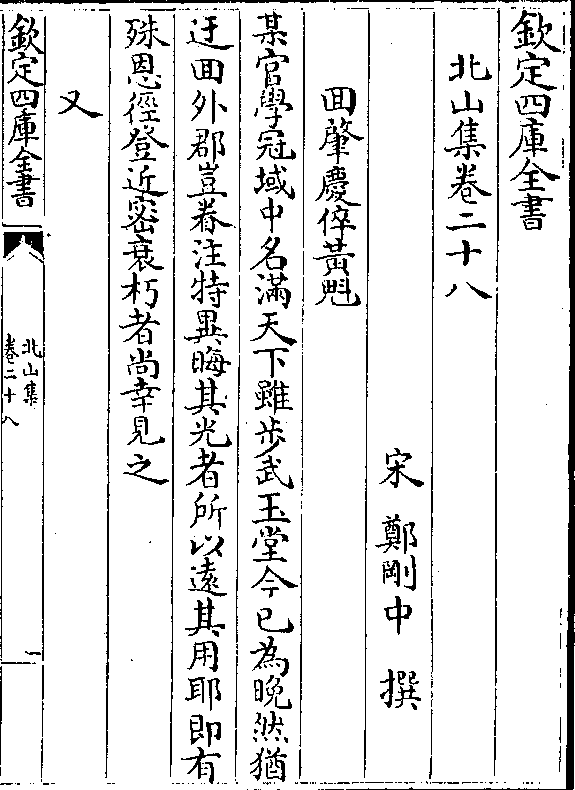 欽定四庫全書
北山集卷二十八
宋 鄭剛中 撰
回肇慶倅黃魁
某官學冠域中名滿天下雖步武玉堂今已為晚然猶
迂回外郡豈眷注特異晦其光者所以遠其用耶即有
殊恩徑登近密衰朽者尚幸見之
又
欽定四庫全書
北山集
卷二十八
一